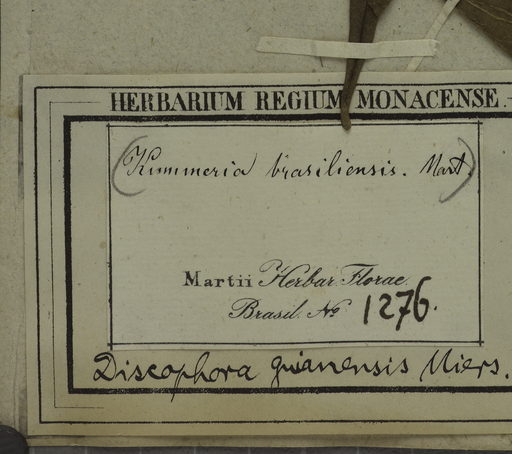 HERBARIUM REGIUM MONACENSE.
(Kummeria brasiliensis. Mart.)
Martii Herbar. Florae
Brasil. No 1276.
Discophora guianensis Miers.